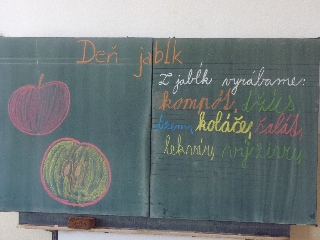 Deň jabĺk
Z jabĺk vyrábame:
kompót, džús
džem, koláče, šalát,
lekváry, výživy